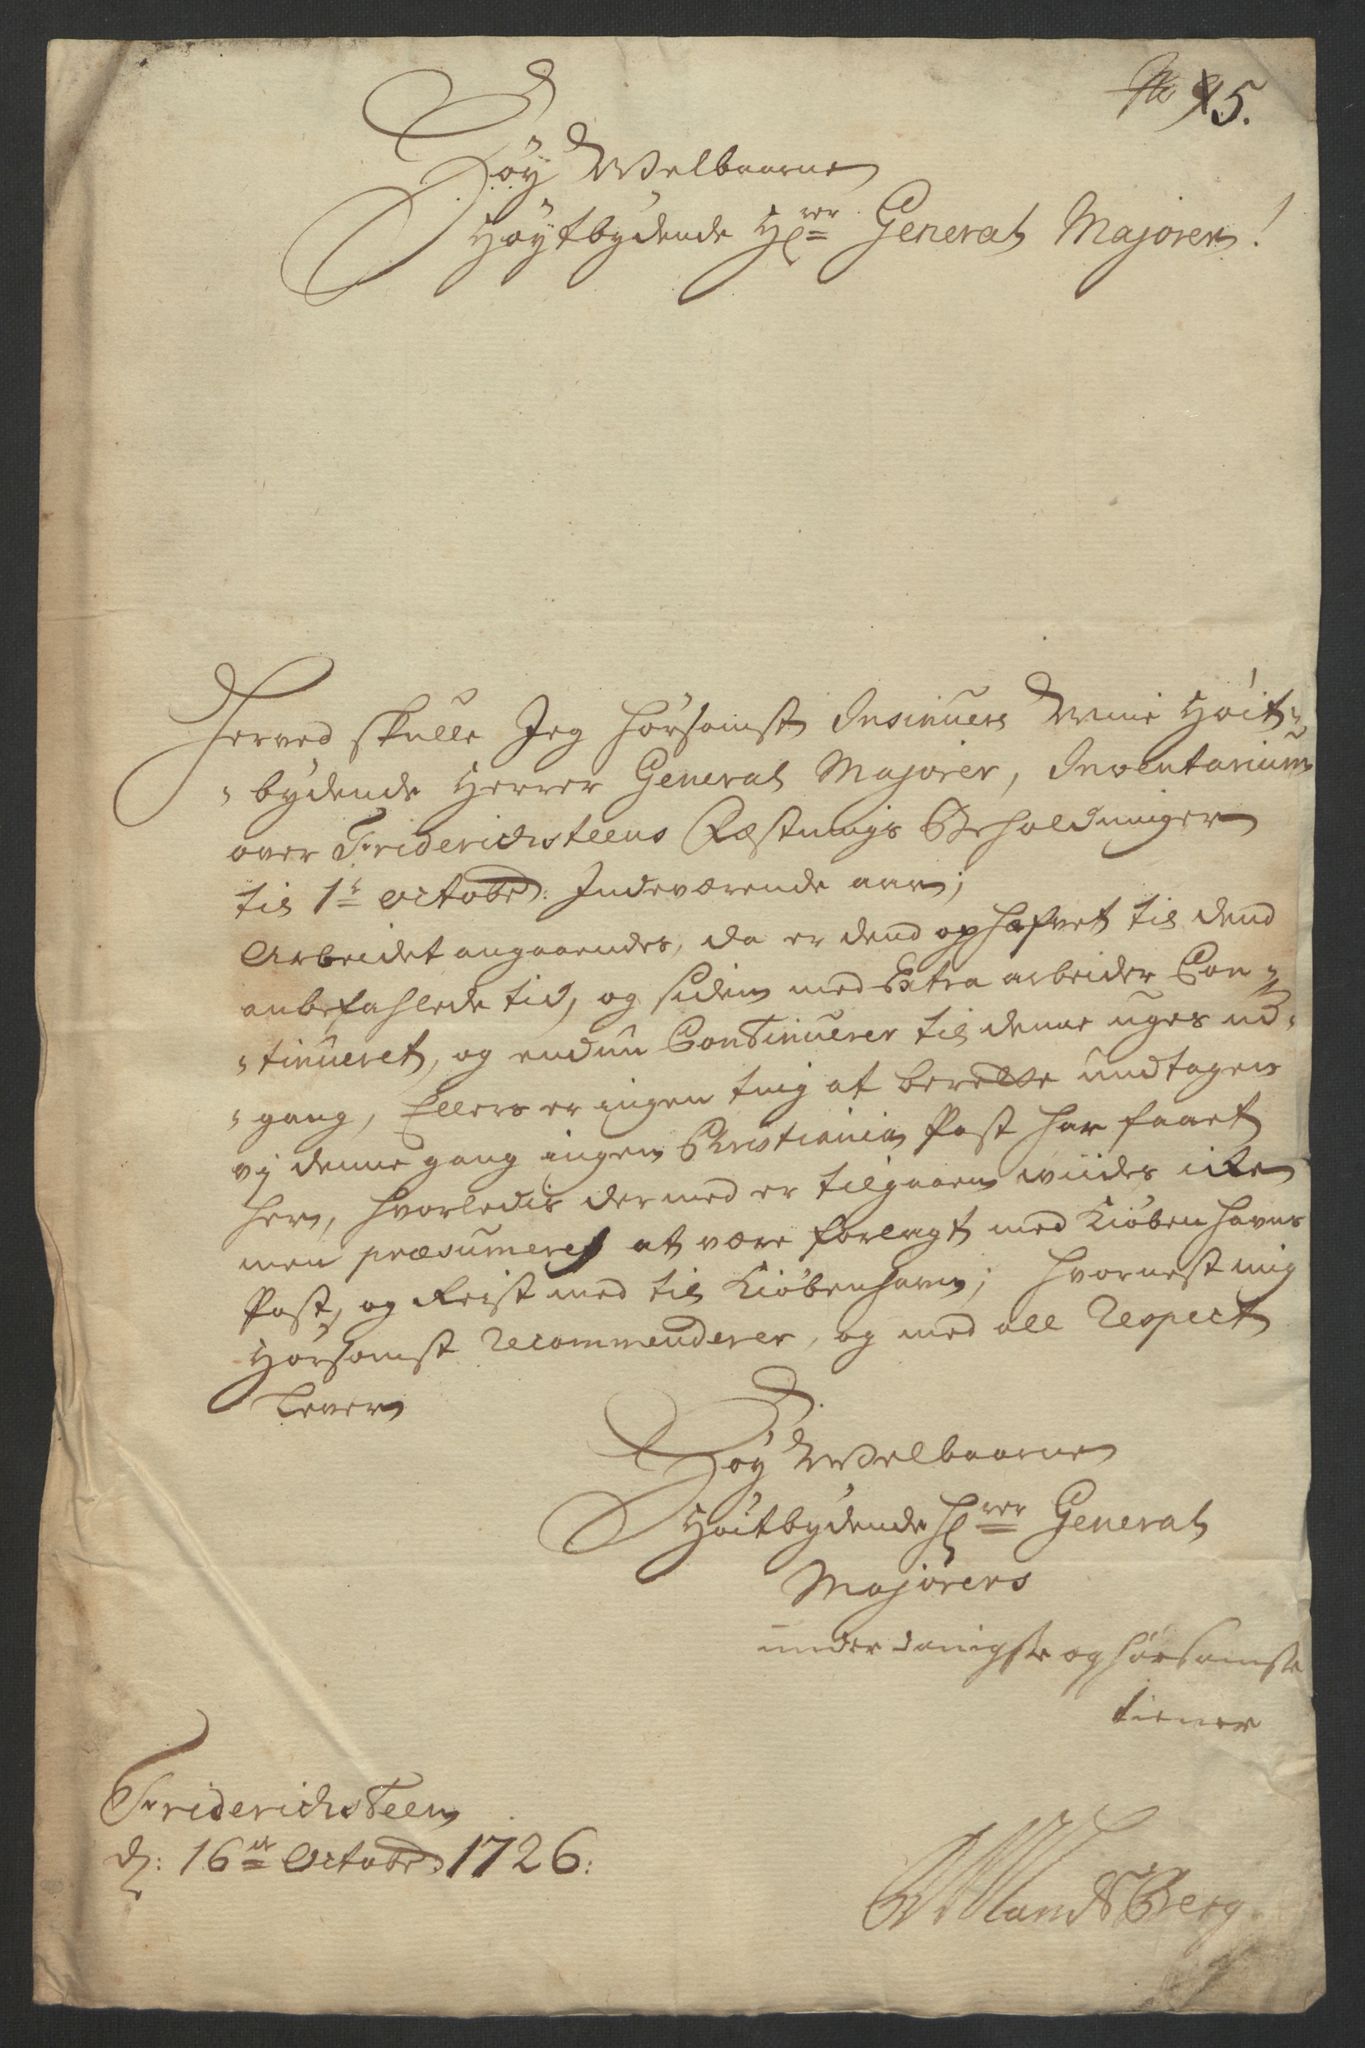 No 15.
Høy Welbaarne
Høytbydende Hrer General Majorer!
Herved skulle Jeg hørsomst Insinuere Mine Høit-
-bydende Herrer General Majorer, Inventarium
over Friderichsteens Fæstnings Beholdninger
til 1t Octobr: Indeværende aar;
Arbeidet angaaendes, da er dend ophæfvet til dend
anbefahlede tid, og siden med Extra arbeider Con-
-tinueret, og endnu Continuerer til denne uges ud-
-gang, Ellers er ingen ting at berette undtagen
vj denne gang ingen Christiania Post har faaet
her, hvorledis dermed er tilgaaen wiides icke
men præsumeres at være forlagt med Kiøbenhavns
Post, og Reist med til Kiøbenhavn; hvornest mig
Hørsomst recommenderer, og med all Respect
Lever
Høy Welbaarne
Høitbydende Hrer General
Majorers
underdanigste og hørsomste
tiener
Friderichsteen
d: 16de Octobr: 1726:
LandsBerg